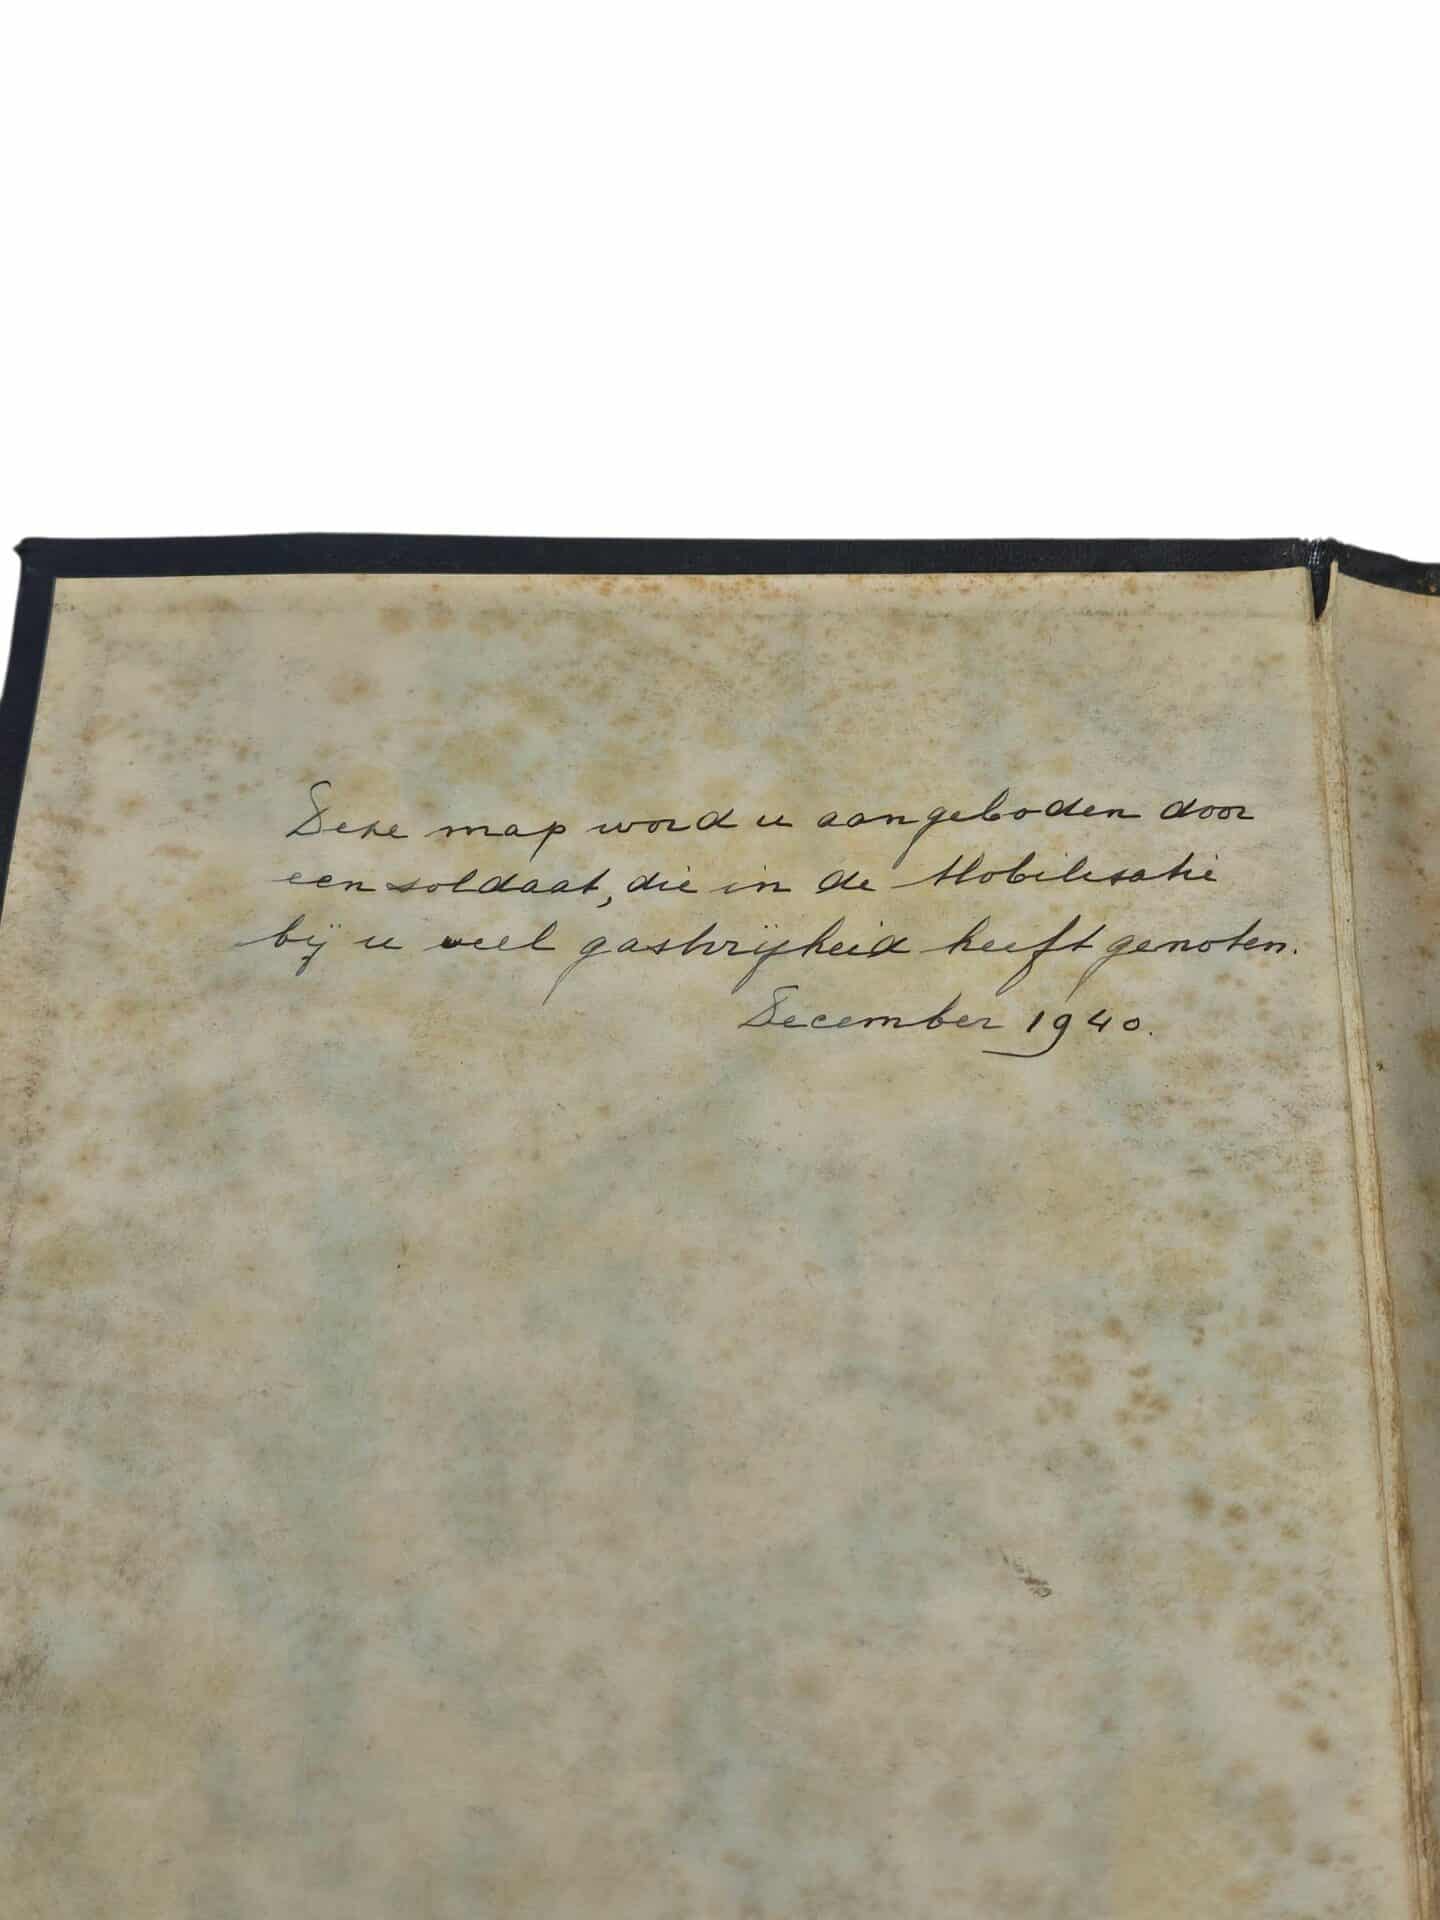 Deze map word u aangeboden door
een soldaat, die in de Mobilisatie
bij u veel gastvrijheid heeft genoten.
December 1940.